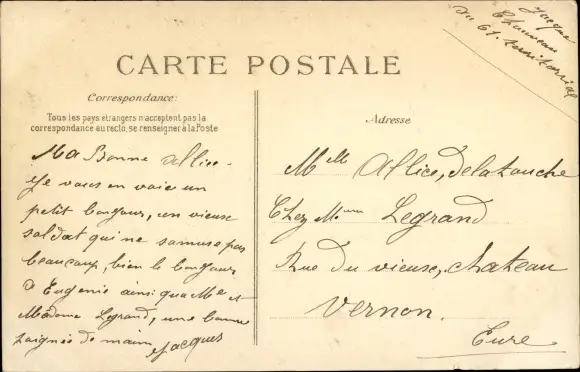 Jacque
Chauveau
au 61. territorial
CARTE POSTALE
Correspondance:
Tous les pays étrangers n'acceptent pas la
correspondance au recto, se renseigner à la Poste
Adresse
Ma Bonne Allice.
Je vous en voie un
petit bonjour, un vieuse
soldat qui ne samuse pas
beaucoup, bien le bonjour
a Eugenie ainsi que Mr et
Madame Legrand, une bonne
poignée de main Jacques
Melle Allice, Delatouche
Chez Mme Legrand
Rue du vieuse, chateau
Vernon.
Eure